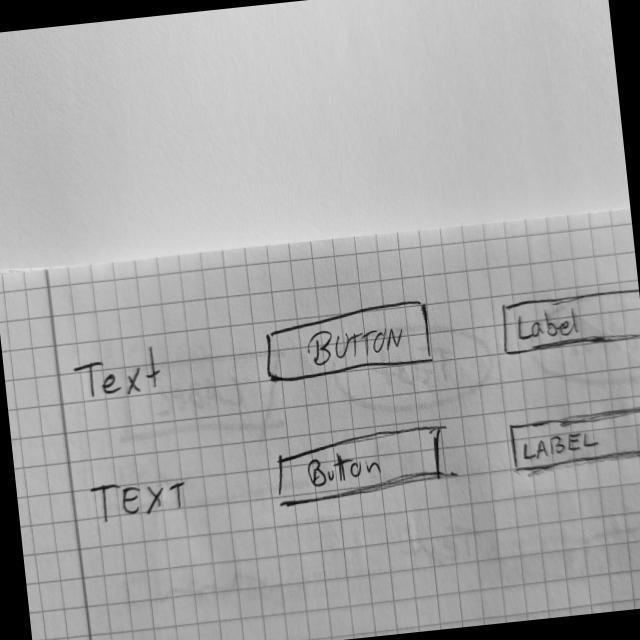 Text BUTTON Label
Text Button LABEL